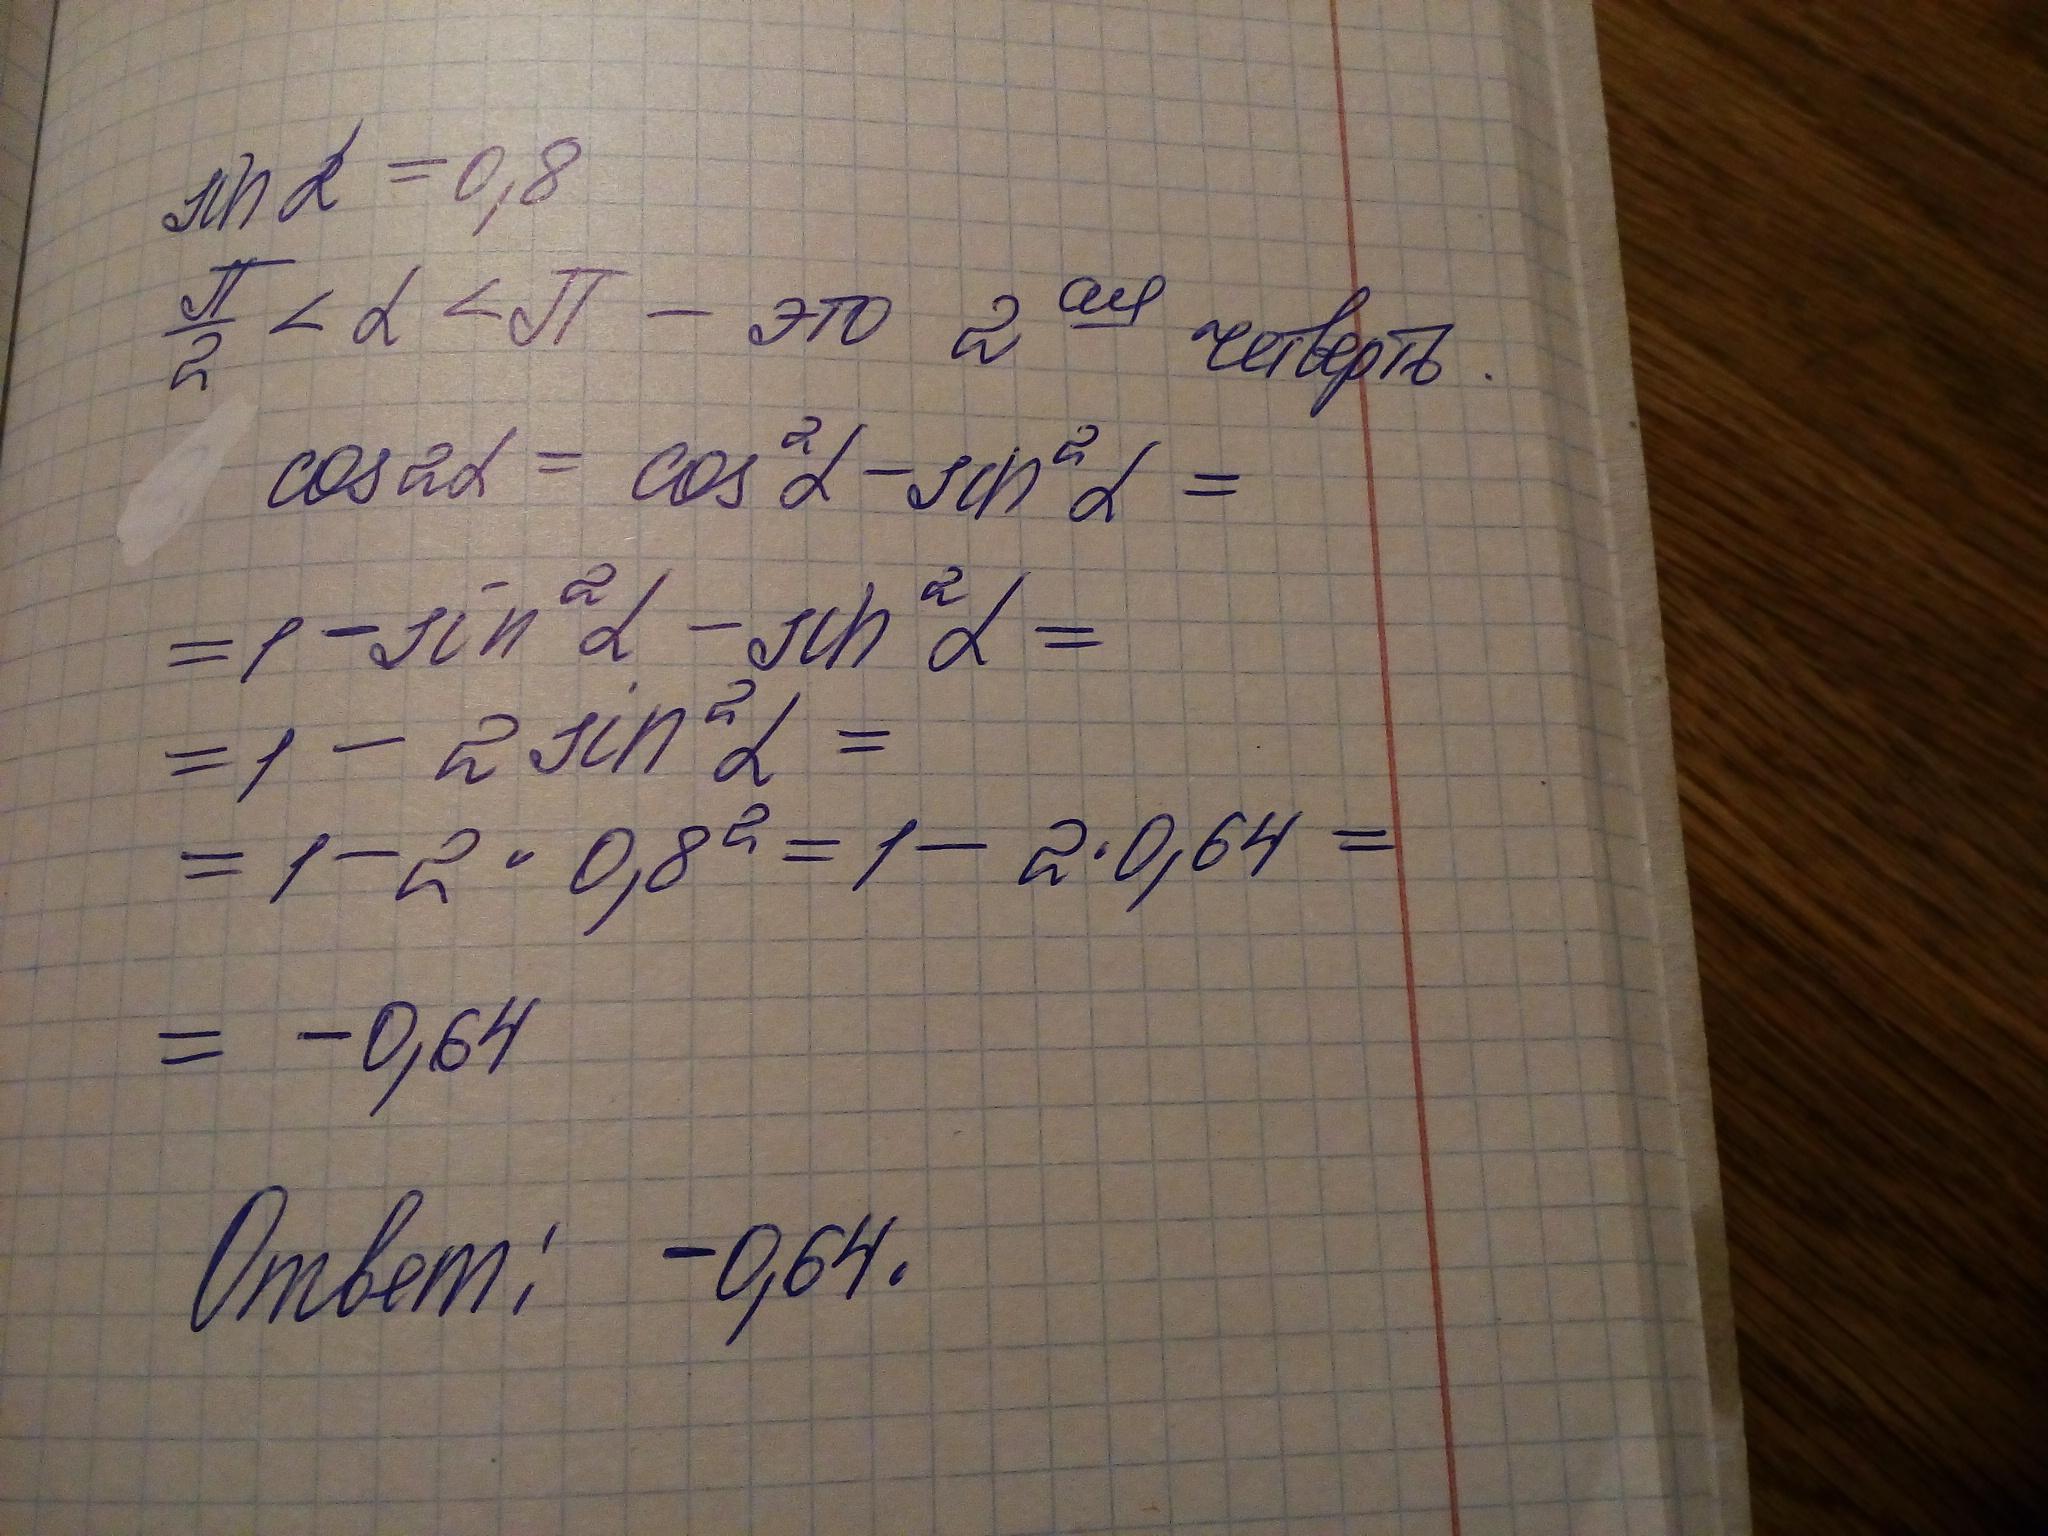 sin α = 0,8
π/2 < α < π – это 2ая четверть.
cos2α = cos²α – sin²α =
= 1 – sin²α – sin²α =
= 1 – 2 sin²α =
= 1 – 2 · 0,8² = 1 – 2 · 0,64 =
= –0,64
Ответ: –0,64.